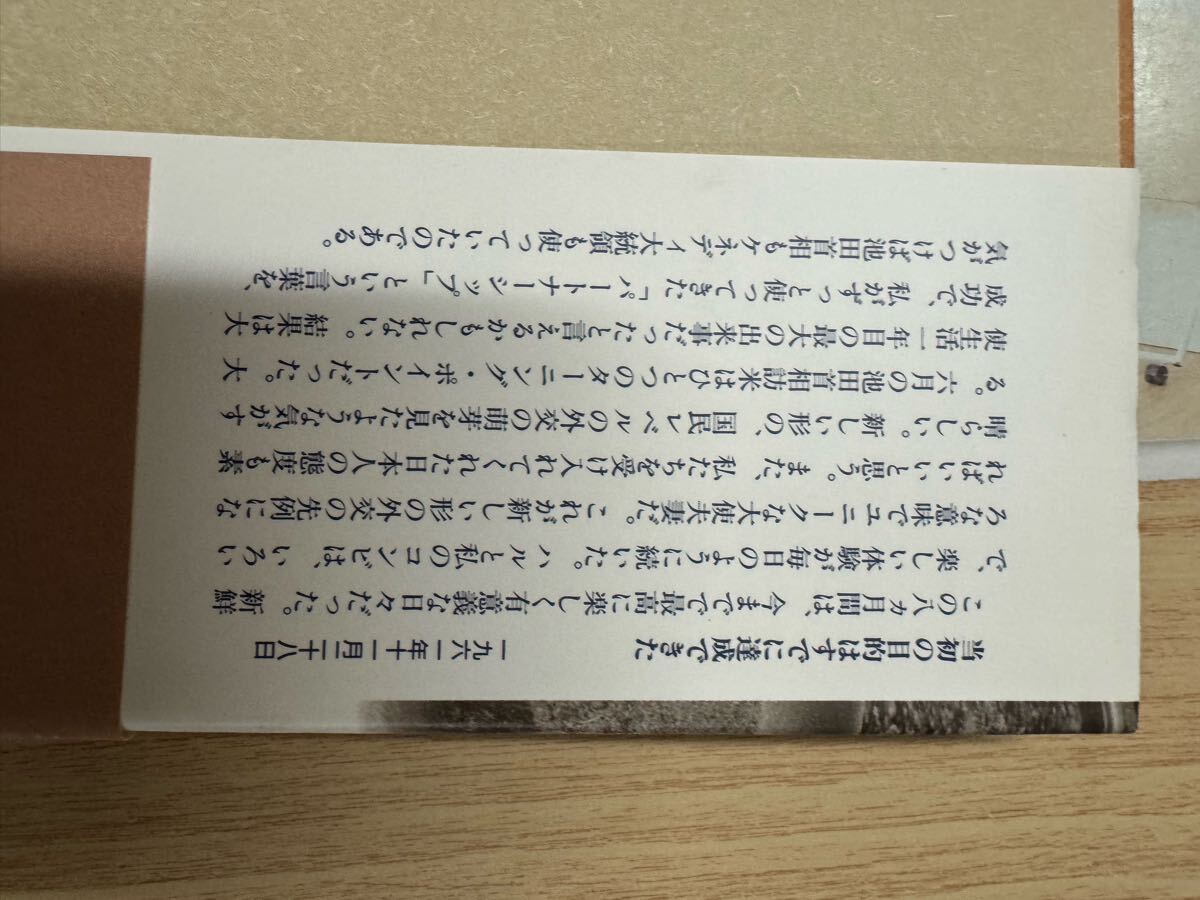 当初の目的はすでに達成できた　　一九六一年十一月二十八日
この八カ月間は、今までで最高に楽しく有意義な日々だった。新鮮
で、楽しい体験が毎日のように続いた。ハルと私のコンビは、いろい
ろな意味でユニークな大使夫妻だ。これが新しい形の外交の先例にな
ればいいと思う。また、私たちを受け入れてくれた日本人の態度も素
晴らしい。新しい形の、国民レベルの外交の萌芽を見たような気がす
る。六月の池田首相訪米はひとつのターニング・ポイントだった。大
使生活一年目の最大の出来事だったと言えるかもしれない。結果は大
成功で、私がずっと使ってきた「パートナーシップ」という言葉を、
気がつけば池田首相もケネディ大統領も使っていたのである。